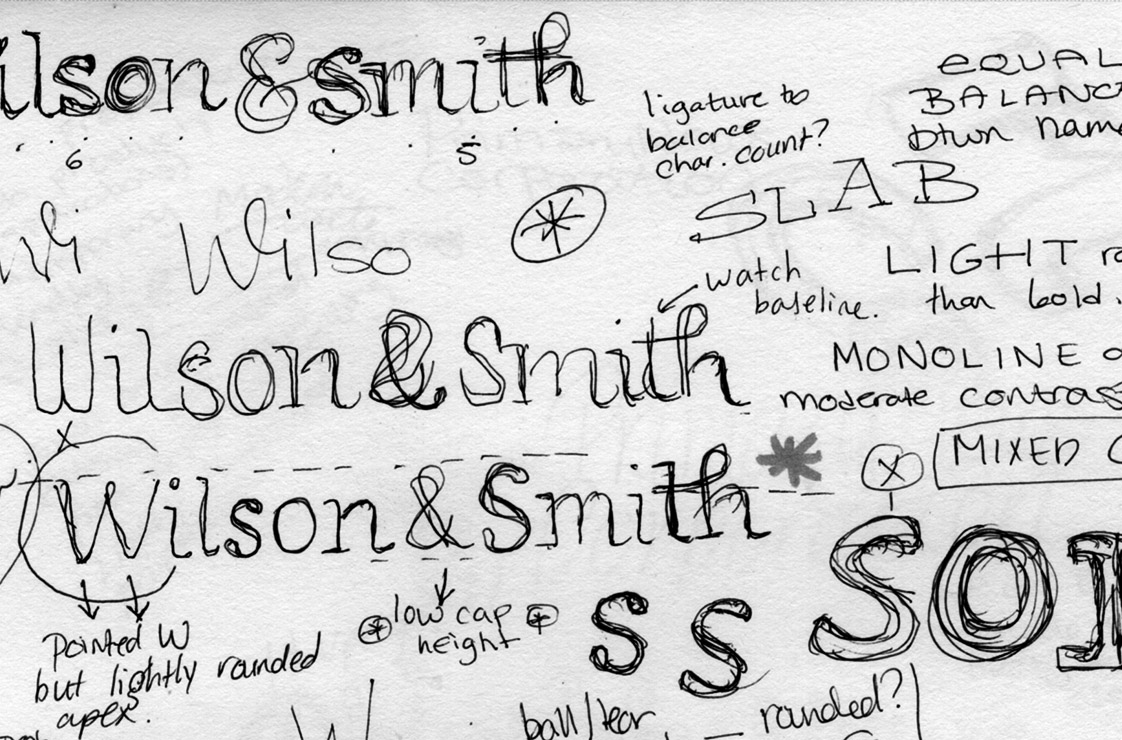 ilson&Smith
6 5
ligature to
balance
char. count?
EQUAL
BALANC
btwn name
SLAB
Wi Wilso
LIGHT
than bold.
watch
baseline.
Wilson&Smith
MONOLINE
moderate contras
X
Wilson&Smith
X
MIXED
low cap
height
Pointed W
but lightly rounded
apex.
S S
SOI
ball/tear
rounded?
W